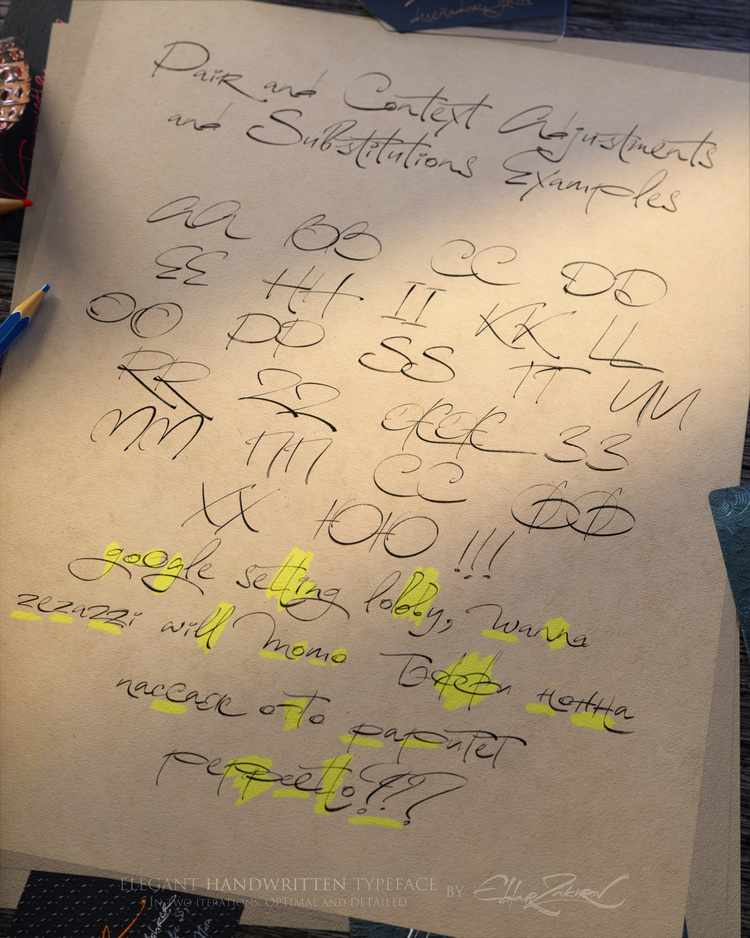 diseñador
Pair and Context Adjustments
and Substitutions Examples
AA BB CC DD
EE HH II KK LL
OO PP SS TT UU
RR 22 ЄЄ 33
MM ПП CC ФФ
XX ЮЮ !!!
google setting lobby, wanna
zezazzi will momo Тоффи нонна
пассаж о-то раритет
perpetto???
ELEGANT HANDWRITTEN TYPEFACE BY Eldar Zakirov
IN TWO ITERATIONS: OPTIMAL AND DETAILED